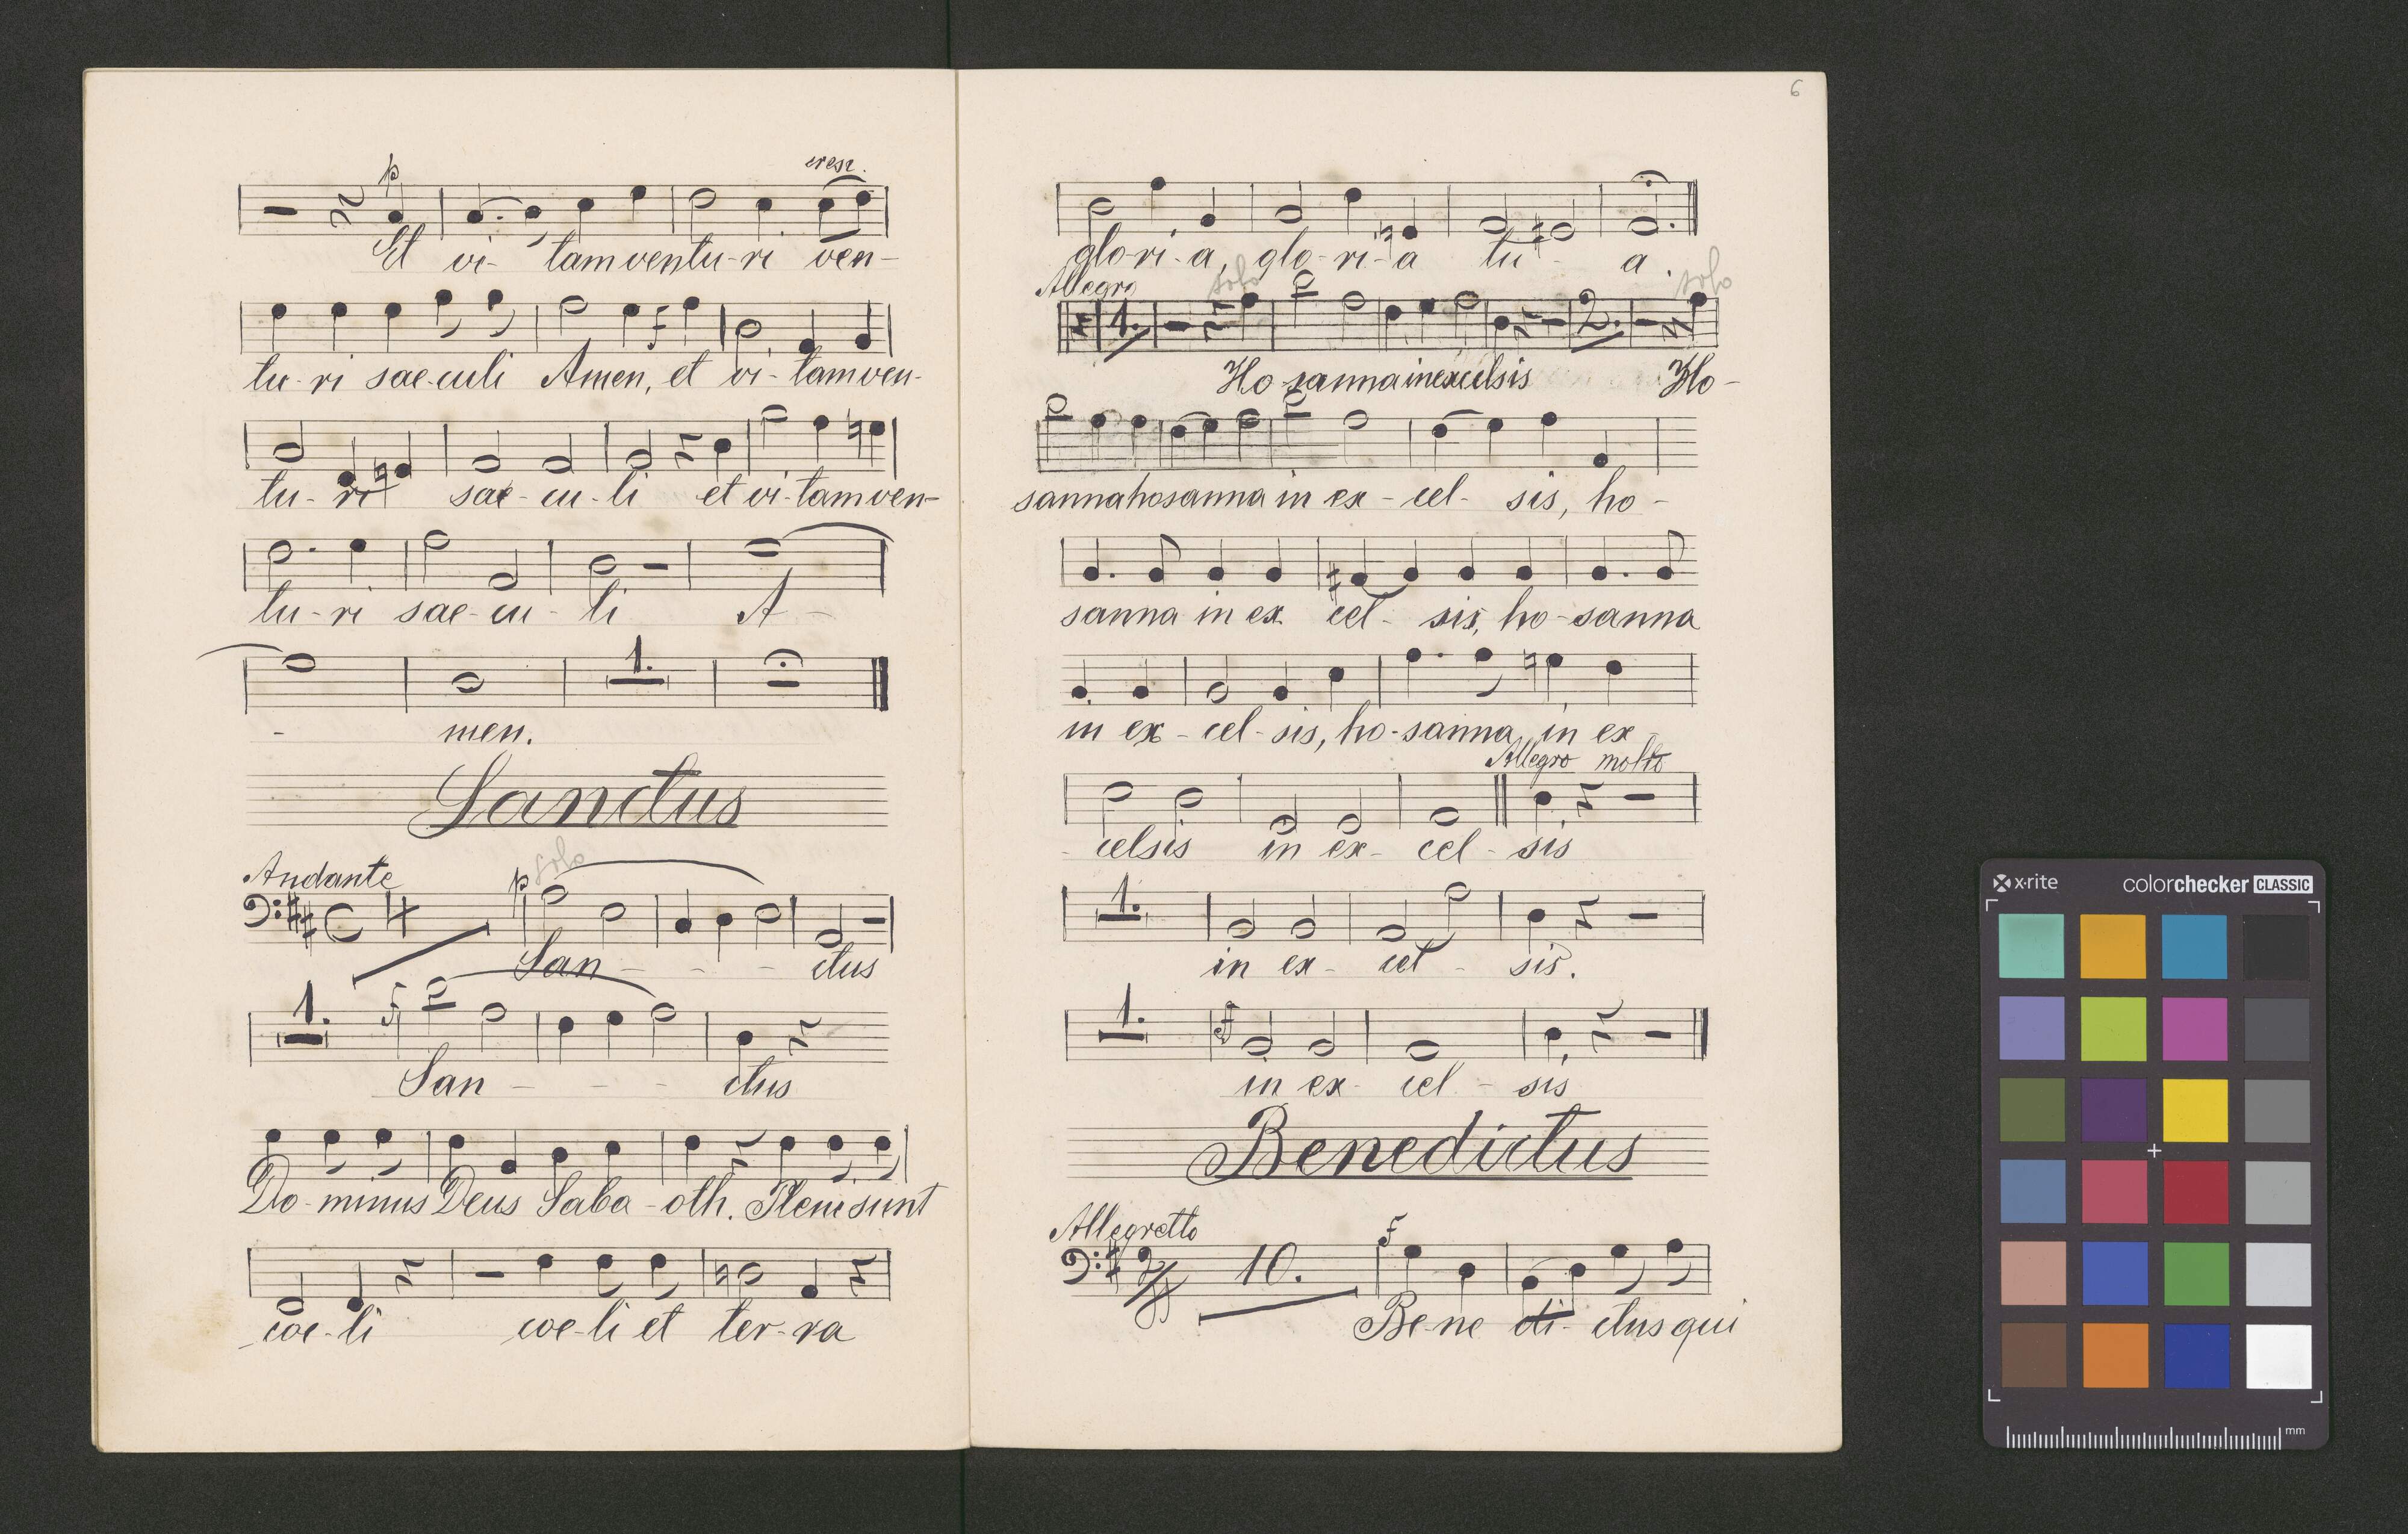 p cresc.
Et vi- tam ventu-ri ven-
f
tu-ri sae-culi Amen, et vi-tam ven-
tu-ri sae-cu-li et vi-tam ven-
tu-ri sae-cu-li A-
1.
- men.
Sanctus
Andante
solo
p
C 4
San - - - ctus
1. f
San - - - ctus
Do-minus Deus Saba-oth. Pleni sunt
coe-li coe-li et ter-ra
6
glo-ri-a, glo-ri-a tu - a.
Allegro solo solo
1. 2.
Ho sanna in excelsis Ho-
sanna hosanna in ex-cel- sis, ho-
sanna in ex cel- sis, ho-sanna
in ex-cel-sis, ho-sanna in ex
Allegro molto
- celsis in ex- cel-sis
1.
in ex- cel - sis.
1. ff
in ex- cel - sis
Benedictus
Allegretto
f
2 10.
Be-ne di-ctus qui
x·rite colorchecker CLASSIC
mm